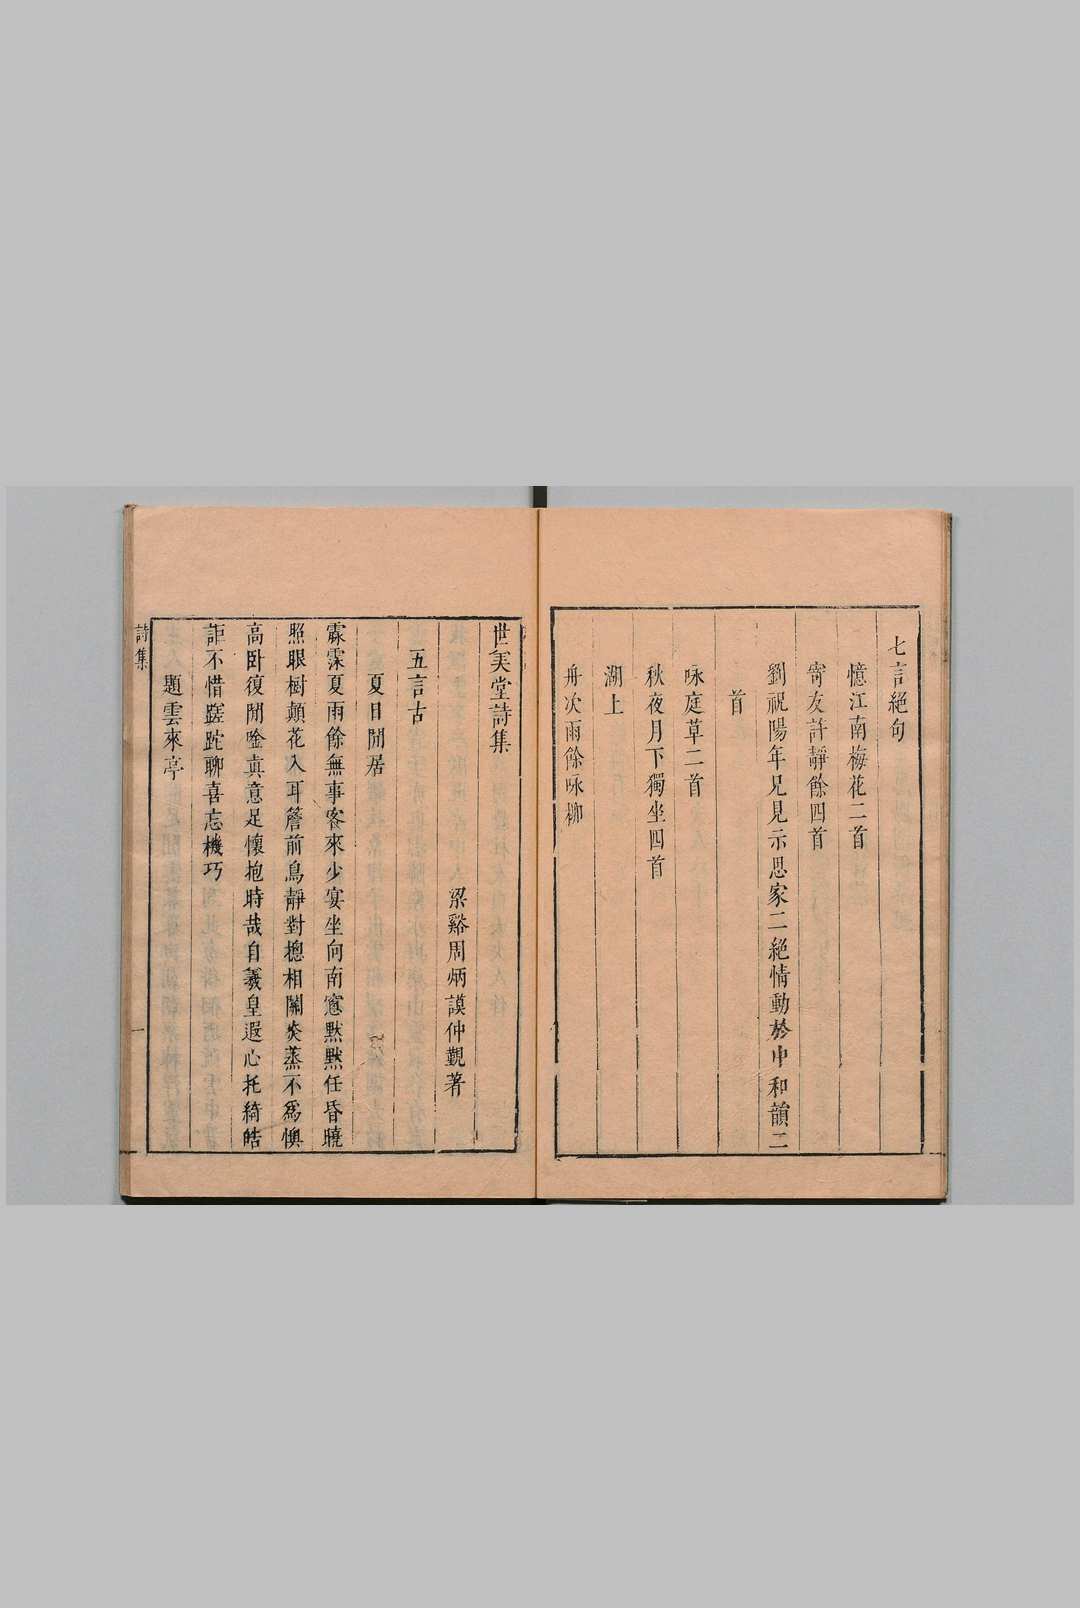 七言絕句
憶江南梅花二首
寄友許靜餘四首
劉祝陽年兄見示思家二絕情動於中和韻二
首
咏庭草二首
秋夜月下獨坐四首
湖上
舟次雨餘咏柳
世美堂詩集
梁谿周炳謨仲觀著
五言古
夏日閒居
霢霂夏雨餘無事客來少宴坐向南窻默默任昏曉
照眼樹顛花入耳簷前鳥靜對摠相關炎蒸不爲懊
高卧復閒唫真意足懷抱時哉自羲皇遐心托綺皓
詎不惜蹉跎聊喜忘機巧
題雲來亭
詩集
一